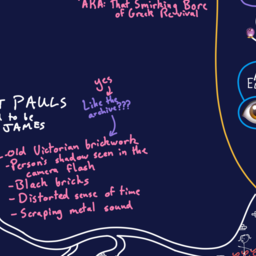 *AKA: That Smirking Bore
of Greek Revival
yes
Like the
archive???
PAULS
to be
JAMES
-Old Victorian brickwork
-Person's shadow seen in the
camera flash
-Black bricks
-Distorted sense of time
-Scraping metal sound